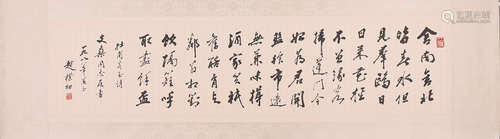 舍南舍北
皆春水但
見羣鷗日
日来花径
不曾缘客
掃蓬門今
始為君開
盤飧市遠
無兼味樽
酒家貧秖
舊醅肯與
鄰翁相對
飲隔籬呼
取盡餘盃
杜甫客至詩
同志屬書
一九八
趙樸初